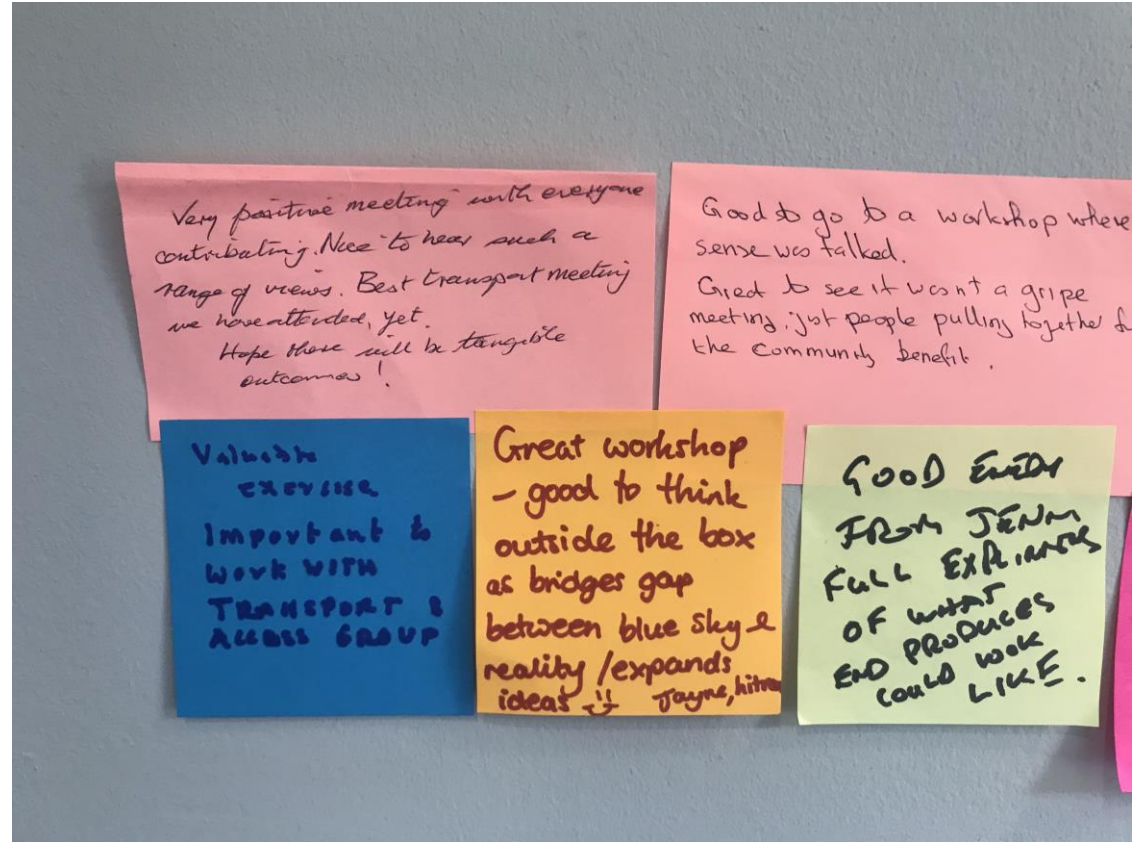 Very positive meeting with everyone
contributing. Nice to hear such a
range of views. Best transport meeting
we have attended, yet.
Hope there will be tangible
outcomes!
Good to go to a workshop where
sense was talked.
Great to see it wasnt a gripe
meeting, just people pulling together
the community benefit.
Valuable
exercise
Important to
WORK WITH
TRANSPORT &
ACCESS GROUP
Great workshop
– good to think
outside the box
as bridges gap
between blue sky &
reality / expands
ideas Jayne,
GOOD
FROM
FULL
OF WHAT
END
COULD LOOK
LIKE.